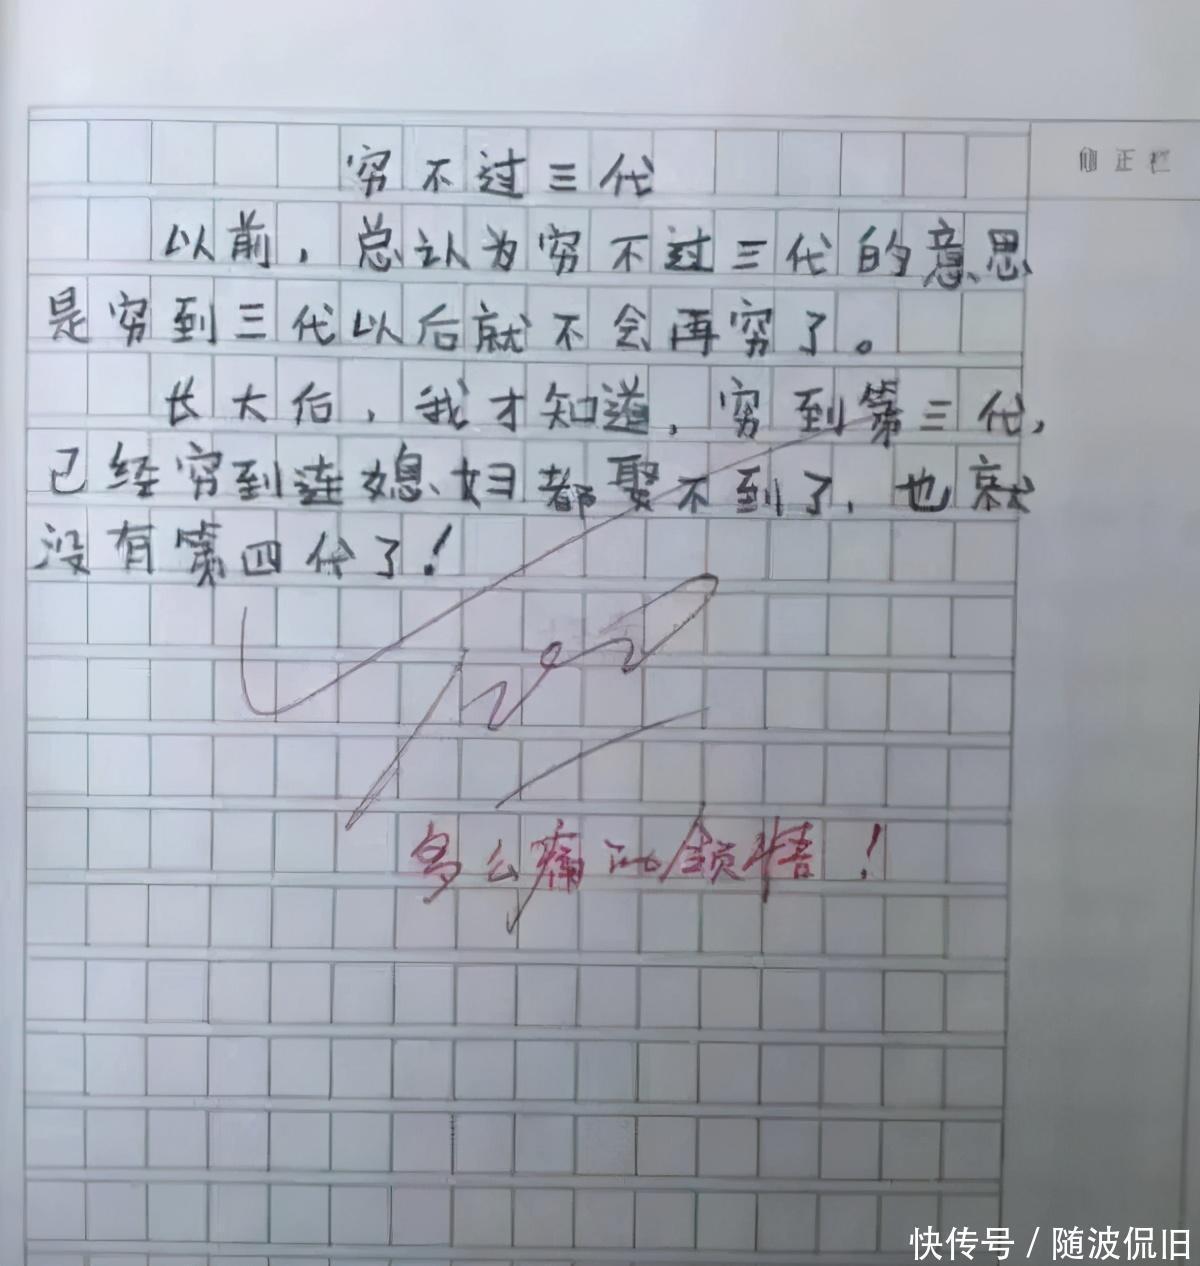 穷不过三代
修正栏
以前，总认为穷不过三代的意思
是穷到三代以后就不会再穷了。
长大后，我才知道，穷到第三代，
已经穷到连媳妇都娶不到了，也就
没有第四代了！
多么痛的领悟！
快传号 / 随波侃旧